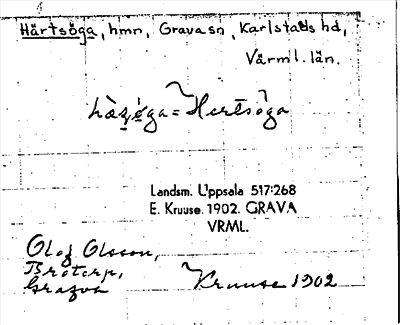 Härtsöga, hmn, Grava sn, Karlstads hd,
Värml. län.
hä̀ʐǿga = Hertsöga
Landsm. Uppsala 517:268
E. Kruuse 1902. GRAVA
VRML.
Olof Olsson,
Brotorp,
Grava
Kruuse 1902